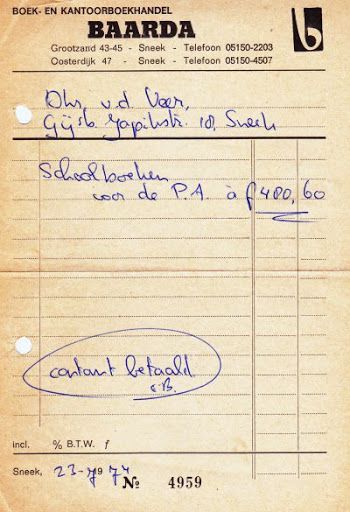 BOEK- EN KANTOORBOEKHANDEL
BAARDA
Grootzand 43-45 - Sneek - Telefoon 05150-2203
Oosterdijk 47 - Sneek - Telefoon 05150-4507
b
Dhr. v.d. Veer,
Gijsb. Japikstr. 18, Sneek
Schoolboeken
voor de P.A. à f 480,60
contant betaald
B.
incl. % B.T.W. f
Sneek, 23-7 19 74
№ 4959